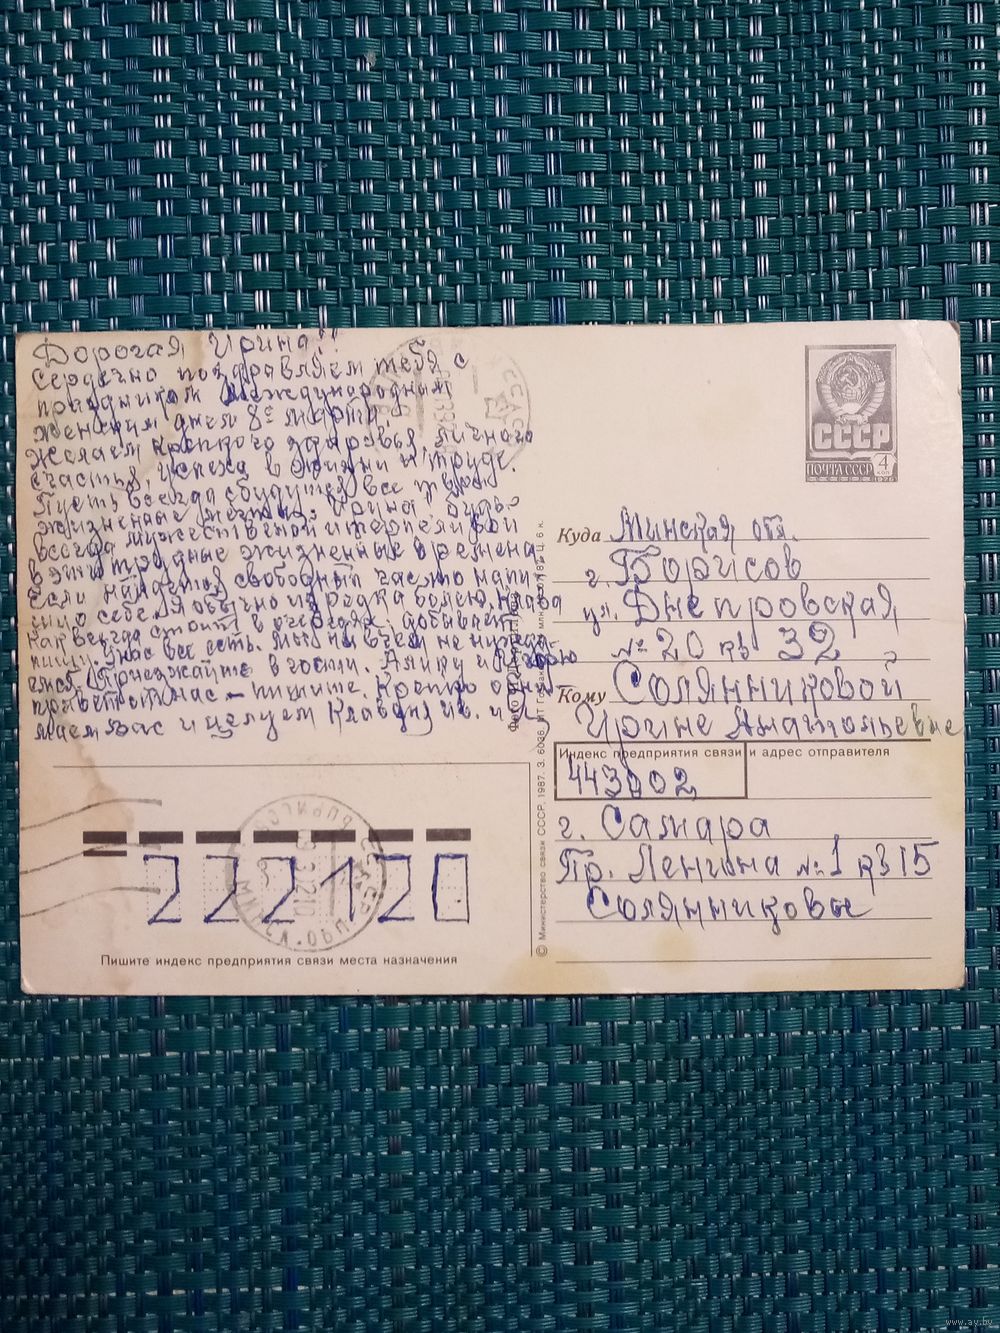 Дорогая Ирина!!
Сердечно поздравляем тебя с
праздником Международным
женским днем 8е марта
Желаем крепкого здоровья личного
счастья, успеха в жизни и труде.
Пусть всегда сбудутся все твои
жизненные мечты. Ирина будь
всегда мужественной и терпеливой
в эти трудные жизненные времена
Если найдется свободный час то напи-
ши о себе. Я обычно изредка болею,
как всегда стоит в очередях, добывает
пищу. У нас все есть. Мы ни в чем не
Приезжайте в гости.
привет от нас - пишите. Крепко обни-
маем вас и целуем Клавдия Ив. и
СССР
ПОЧТА СССР
4
КОП
1976
Куда Минская обл.
г. Борисов
ул. Днепровская
№ 20 кв 32
Кому Солянниковой
Ирине Анатольевне
Индекс предприятия связи и адрес отправителя
443002
г. Самара
Пр. Ленина № 1 кв 15
Солянниковы
222120
Пишите индекс предприятия связи места назначения
© Министерство связи СССР, 1987. З. 6036.
www.ay.by